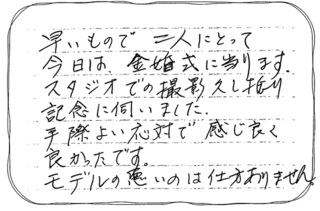 早いもので 二人にとって
今日は 金婚式に当ります.
スタジオでの撮影久し振り
記念に伺いました.
手際よい応対で 感じ良く
良かったです。
モデルの悪いのは仕方ありません。